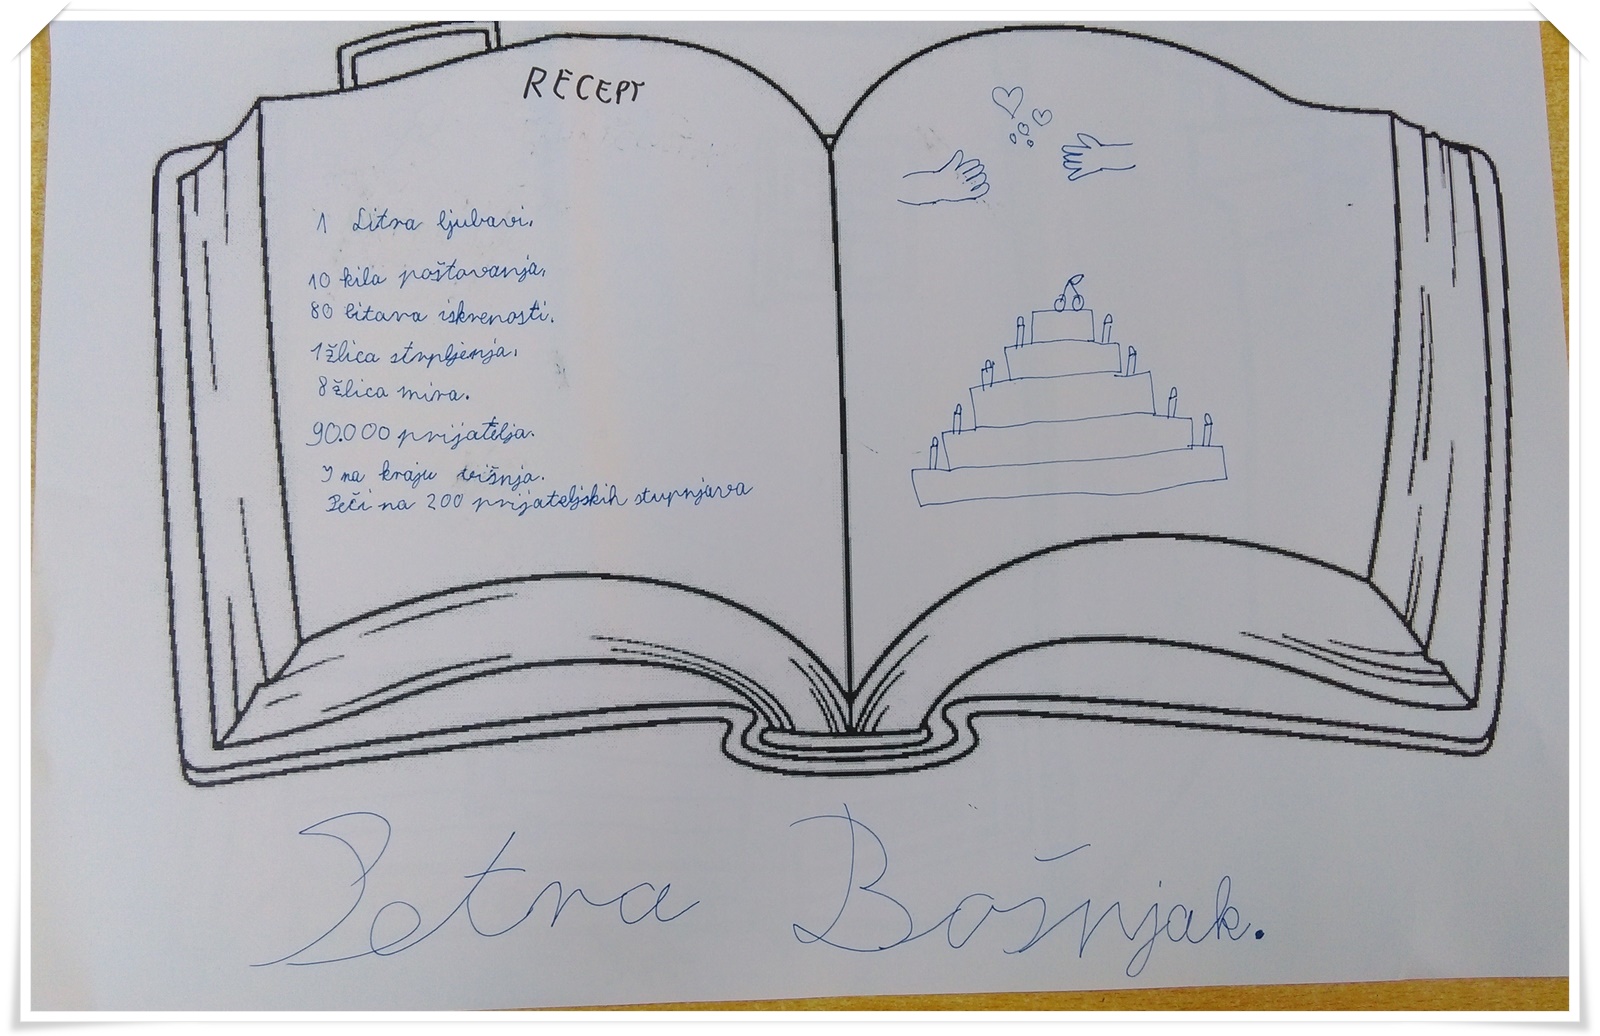 RECEPT
1 Litra ljubavi.
10 kila poštovanja.
80 litara iskrenosti.
1 žlica strpljenja.
8 žlica mira.
90.000 prijatelja.
I na kraju višnja.
Peči na 200 prijateljskih stupnjava
Petra Bošnjak.